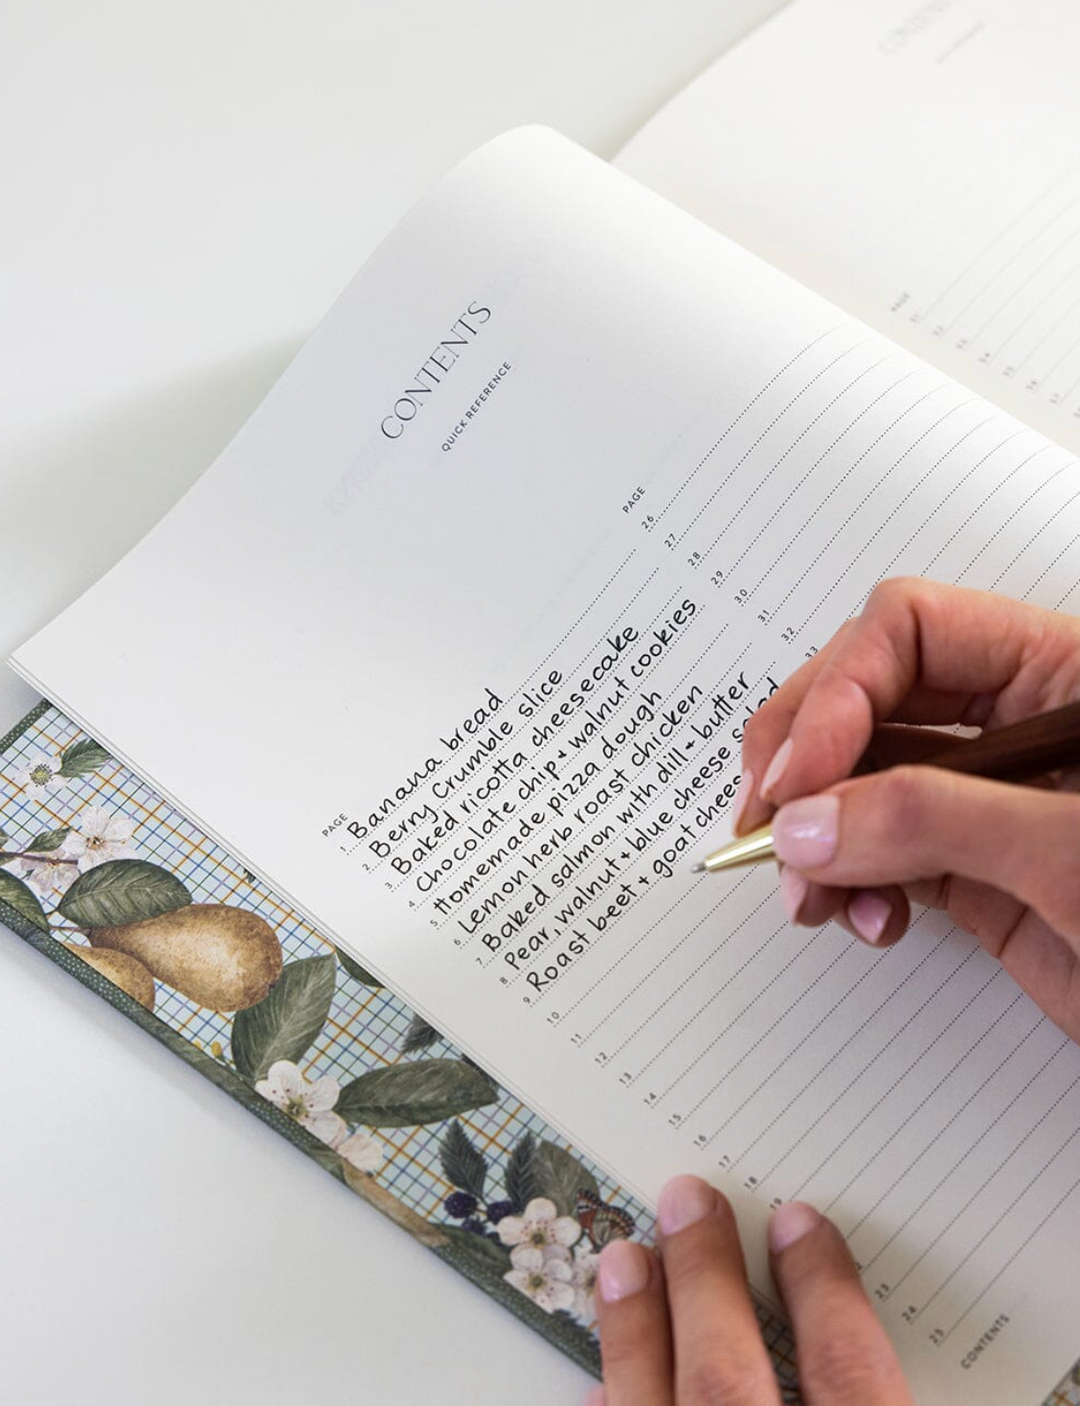 CONTENTS
QUICK REFERENCE
PAGE
1. Banana bread
2. Berry Crumble slice
3. Baked ricotta cheesecake
4. Chocolate chip + walnut cookies
5. Homemade pizza dough
6. Lemon herb roast chicken
7. Baked salmon with dill + butter
8. Pear, walnut + blue cheese salad
9. Roast beet + goat chees
10
11
12
13
14
15
16
17
18
19
23
24
25
PAGE
26
27
28
29
30
31
32
33
CONTENTS
CONTENTS
PAGE